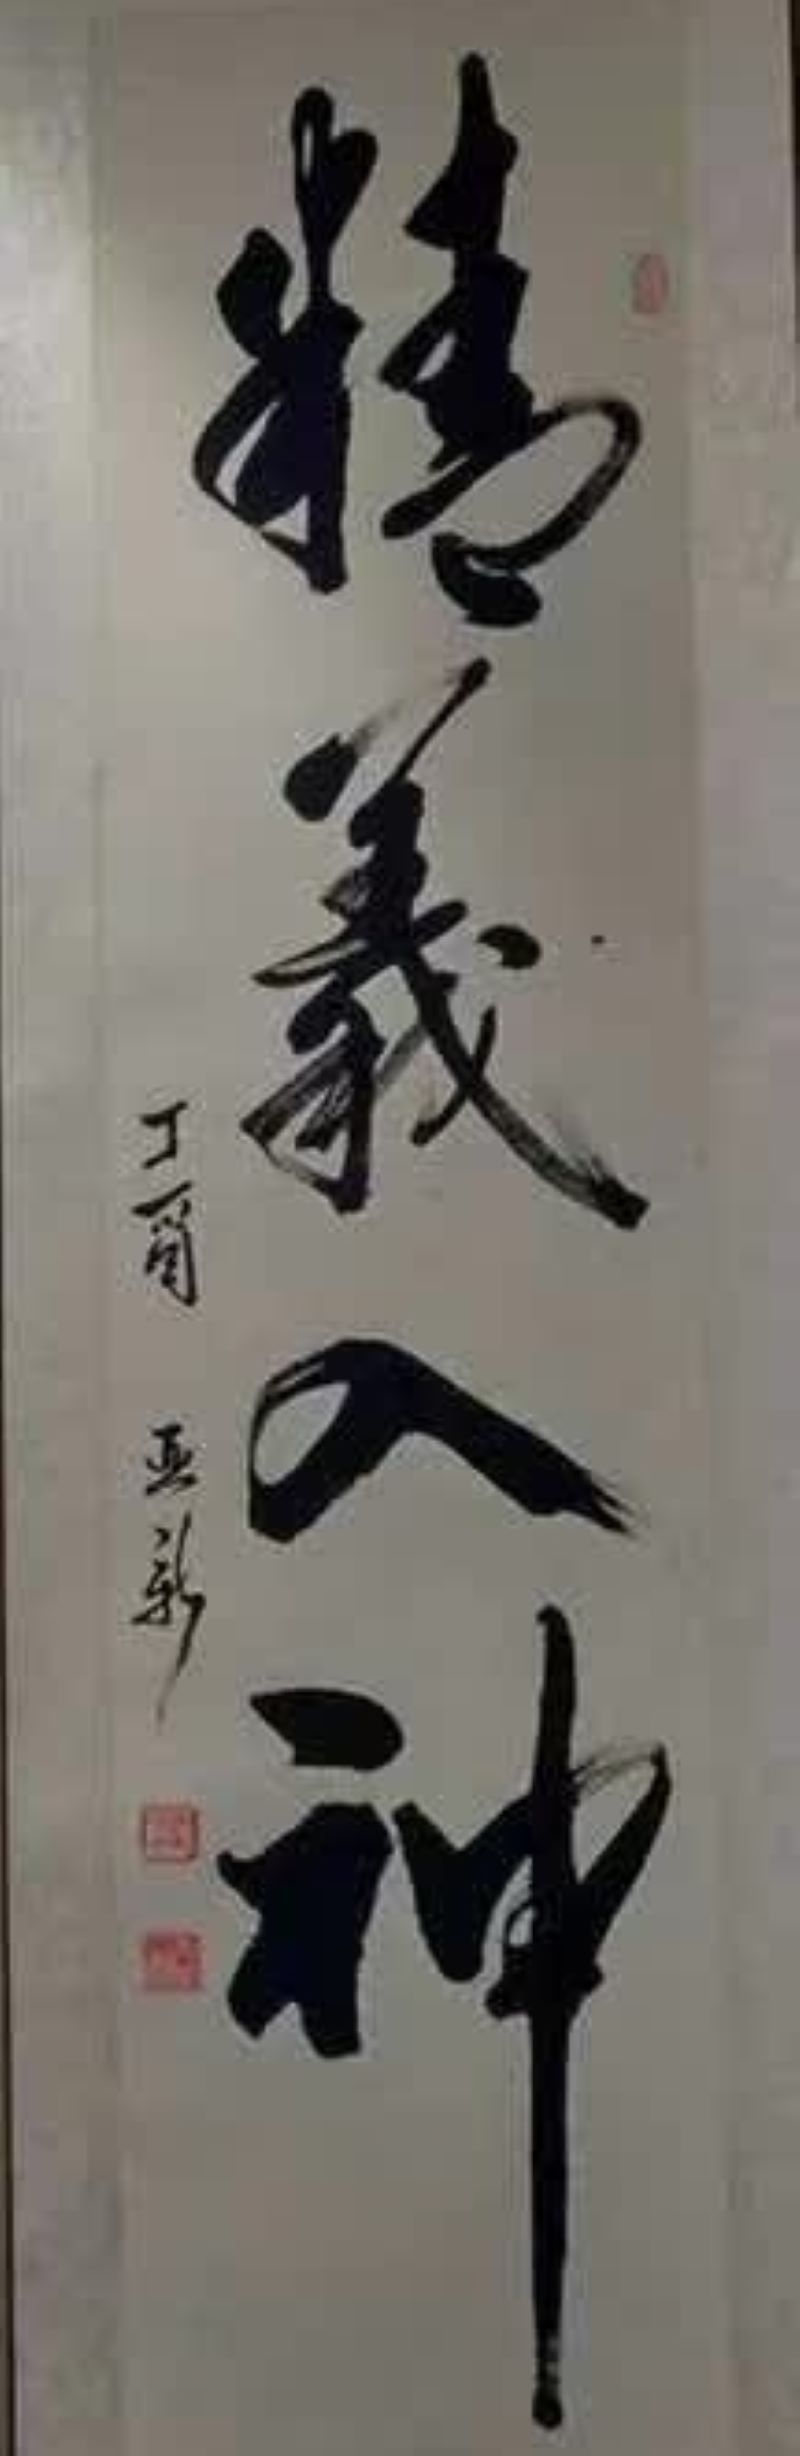 精義入神
丁酉 亚新